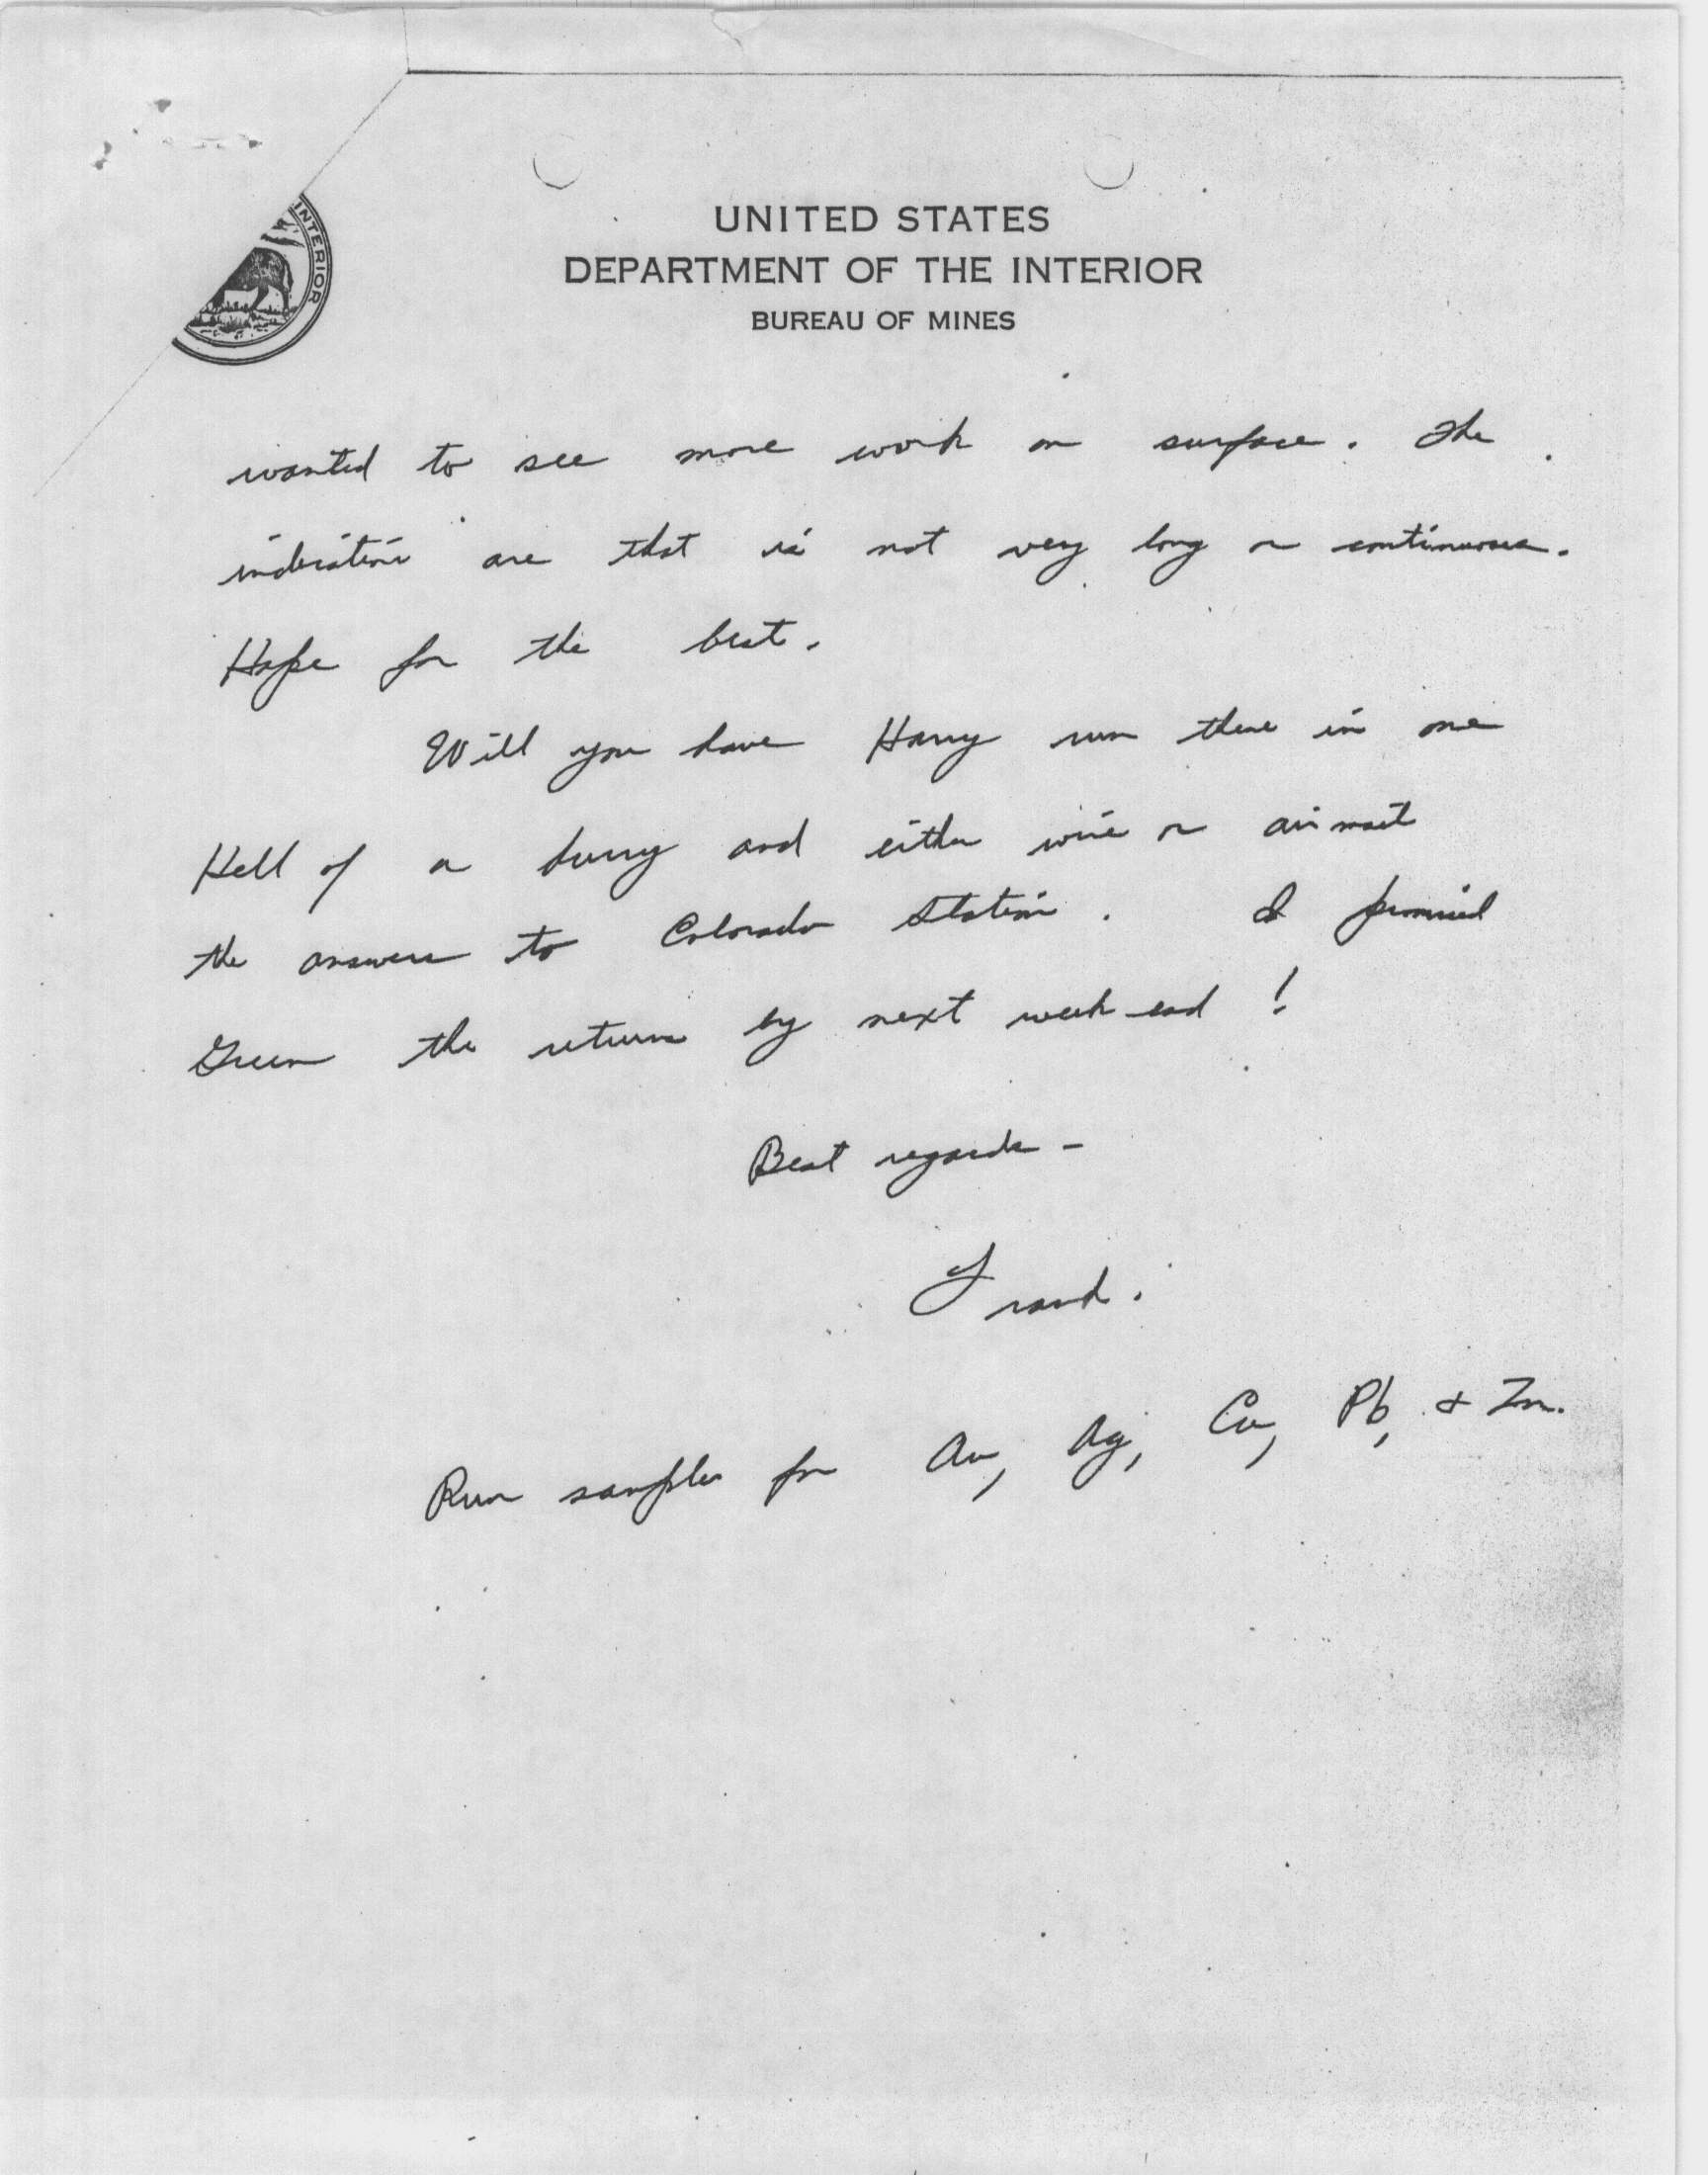 INTERIOR
UNITED STATES
DEPARTMENT OF THE INTERIOR
BUREAU OF MINES
wanted to see more work on surface. The
indications are that is not very long or continuous.
Hope for the best.
Will you have Harry run these in one
Hell of a hurry and either wire or airmail
the answers to Colorado Station. I promised
Green the returns by next week-end!
Best regards -
Frank.
Run samples for Au, Ag, Cu, Pb, & Zn.